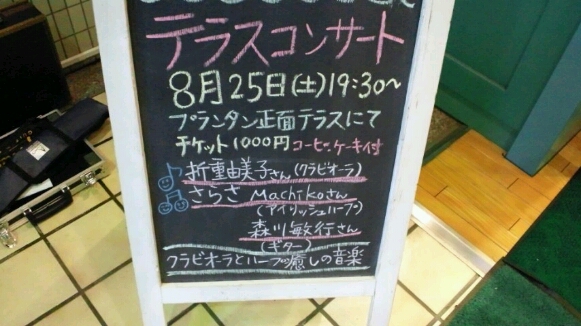 テラスコンサート
8月25日(土)19:30~
プランタン正面テラスにて
チケット1000円 コーヒー、ケーキ付
折重由美子さん(クラビオーラ)
さらさ Machikoさん
(アイリッシュハープ)
森川敏行さん
(ギター)
クラビオーラとハープの癒しの音楽